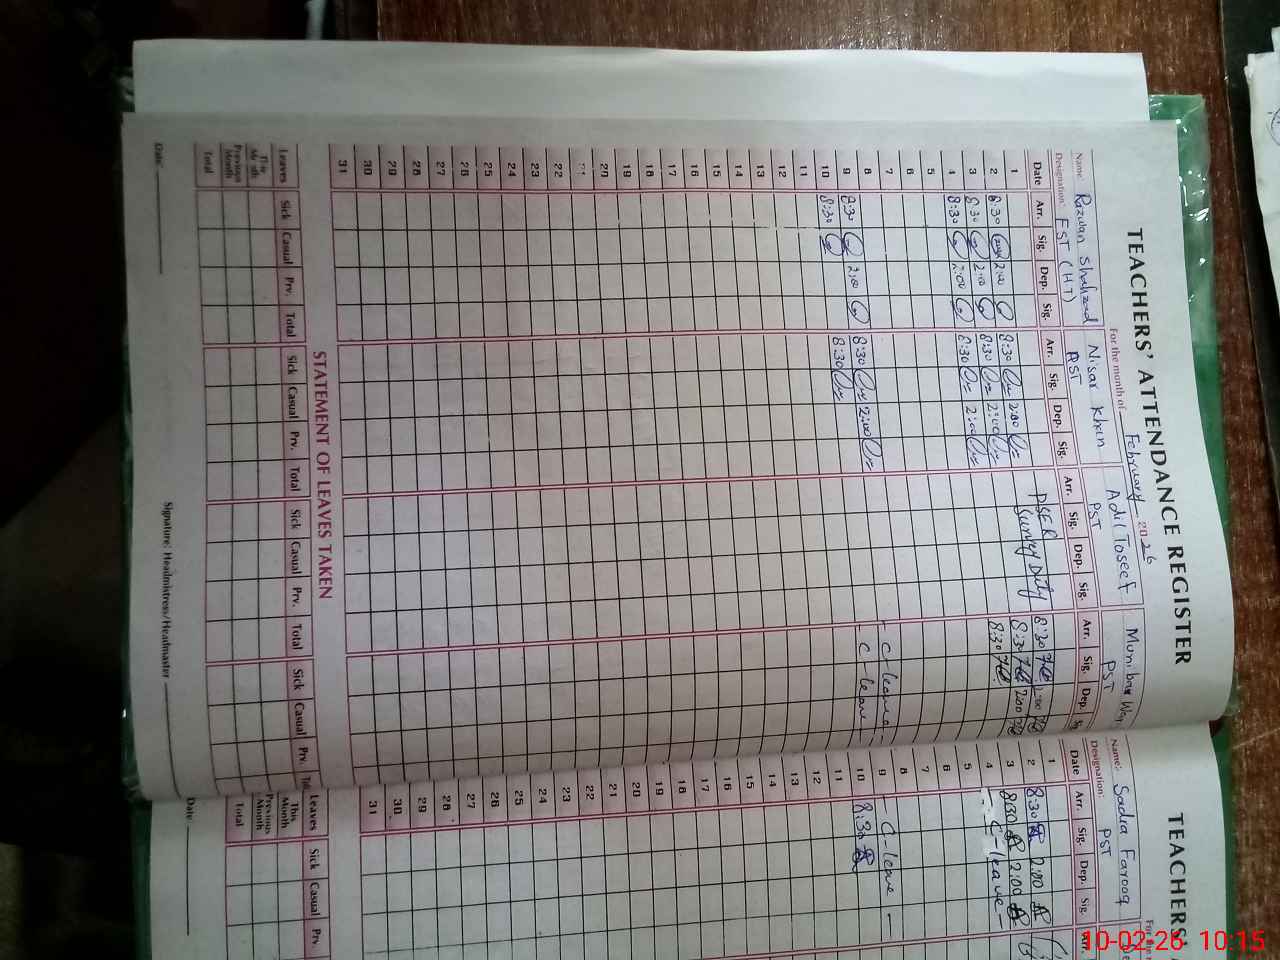 TEACHERS' ATTENDANCE REGISTER
For the month of February 2026
Name: Razwan Shahzad Nisar Khan Adil Toseef
Designation: EST (HT) PST PST PST
Date Arr. Sig. Dep. Sig. Arr. Sig. Dep. Sig. Arr. Sig. Dep. Sig. Arr. Sig. Dep.
1
2 8:30 2:00 8:30 2:00 PSER Survey Duty 8:30 2:00
3 8:30 2:00 8:30 2:00 8:30 2:00
4 8:30 2:00 8:30 2:00 8:30
5
6
7
8
9 8:30 2:00 8:30 2:00 - C-leave -
10 8:30 8:30 - C-leave -
11
12
13
14
15
16
17
18
19
20
21
22
23
24
25
26
27
28
29
30
31
STATEMENT OF LEAVES TAKEN
Leaves Sick Casual Prv. Total Sick Casual Prv. Total Sick Casual Prv. Total Sick Casual Prv.
This Month
Previous Month
Total
Date: Signature: Headmistress/Headmaster
TEACHERS'
Name: Sadia Farooq
Designation: PST
Date Arr. Sig. Dep. Sig.
1
2 8:30 2:00
3 8:30 2:00
4 - C-leave -
5
6
7
8
9 C-leave -
10 8:30
11
12
13
14
15
16
17
18
19
20
21
22
23
24
25
26
27
28
29
30
31
Leaves Sick Casual Prv.
This Month
Previous Month
Total
Date:
10-02-26 10:15